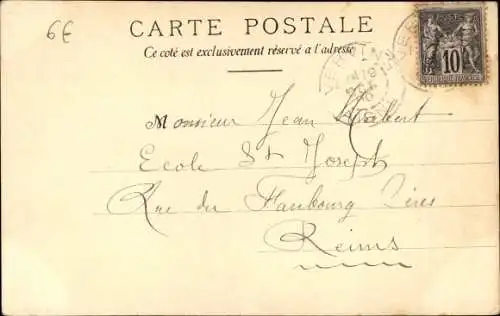 6E
CARTE POSTALE
Ce coté est exclusivement réservé a l'adresse
10
REPUBLIQUE FRANÇAISE
Monsieur Jean
Ecole St Joseph
Rue du Faubourg Cères
Reims